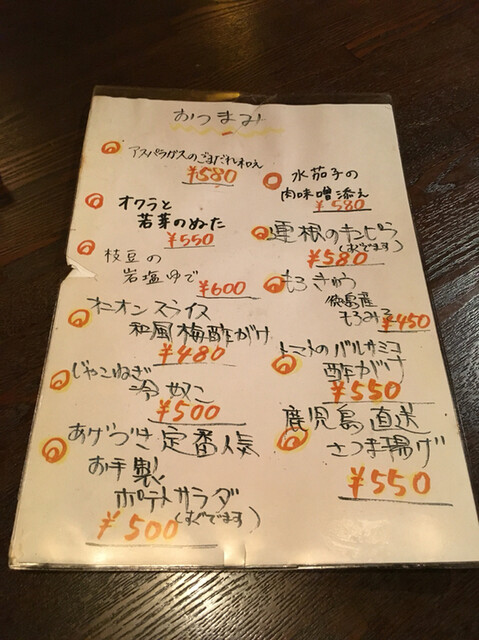 おつまみ
アスパラガスのごまだれ和え
¥580
オクラと
若芽のぬた
¥550
枝豆の
岩塩ゆで
¥600
オニオンスライス
和風梅酢がけ
¥480
じゃこねぎ
冷奴こ
¥500
あげづき定番人気
お手製
ポテトサラダ
(すぐでます)
¥500
水茄子の
肉味噌添え
¥580
蓮根のキンピラ
(すぐでます)
¥580
もろきゅう
徳島産
もろみ
¥450
トマトのバルサミコ
酢がけ
¥550
鹿児島直送
さつま揚げ
¥550